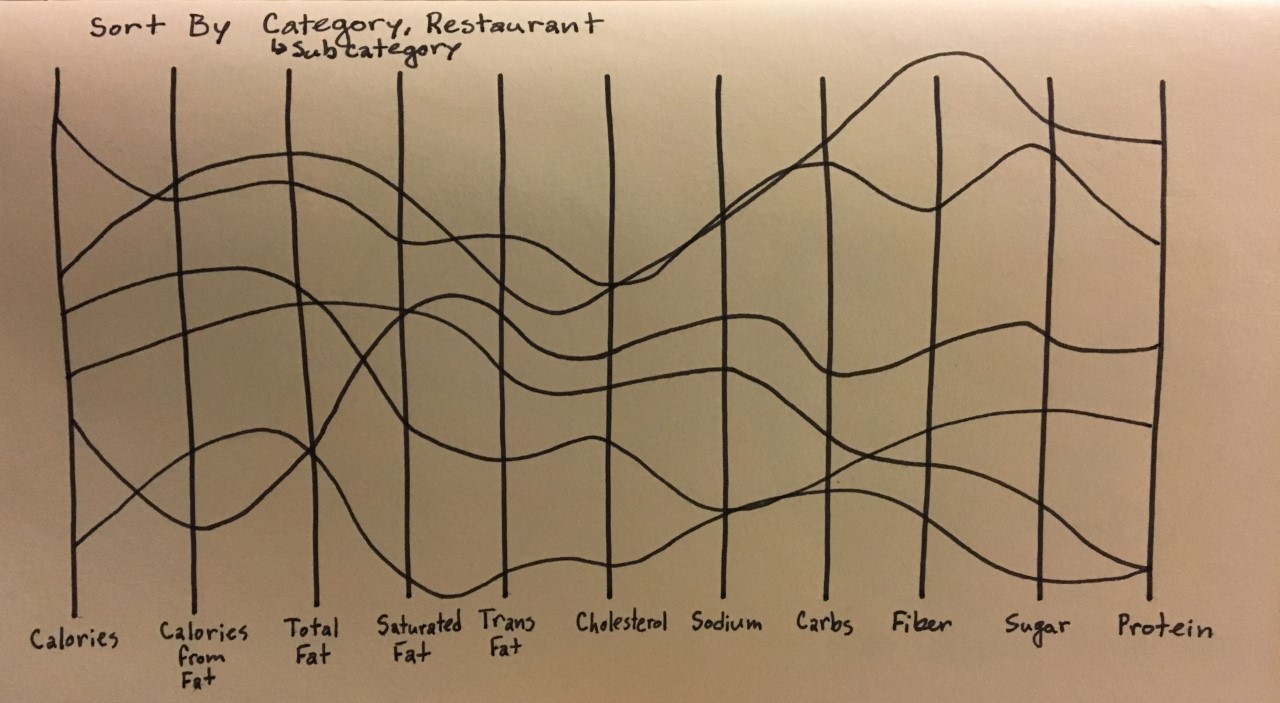 Sort By Category, Restaurant
↳ Subcategory
Calories
Calories
from
Fat
Total
Fat
Saturated
Fat
Trans
Fat
Cholesterol
Sodium
Carbs
Fiber
Sugar
Protein